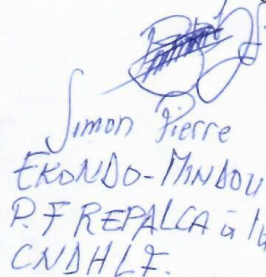 Simon Pierre
EKONDO-MINDOU
P.F REPALCA à la
CNDHLF.